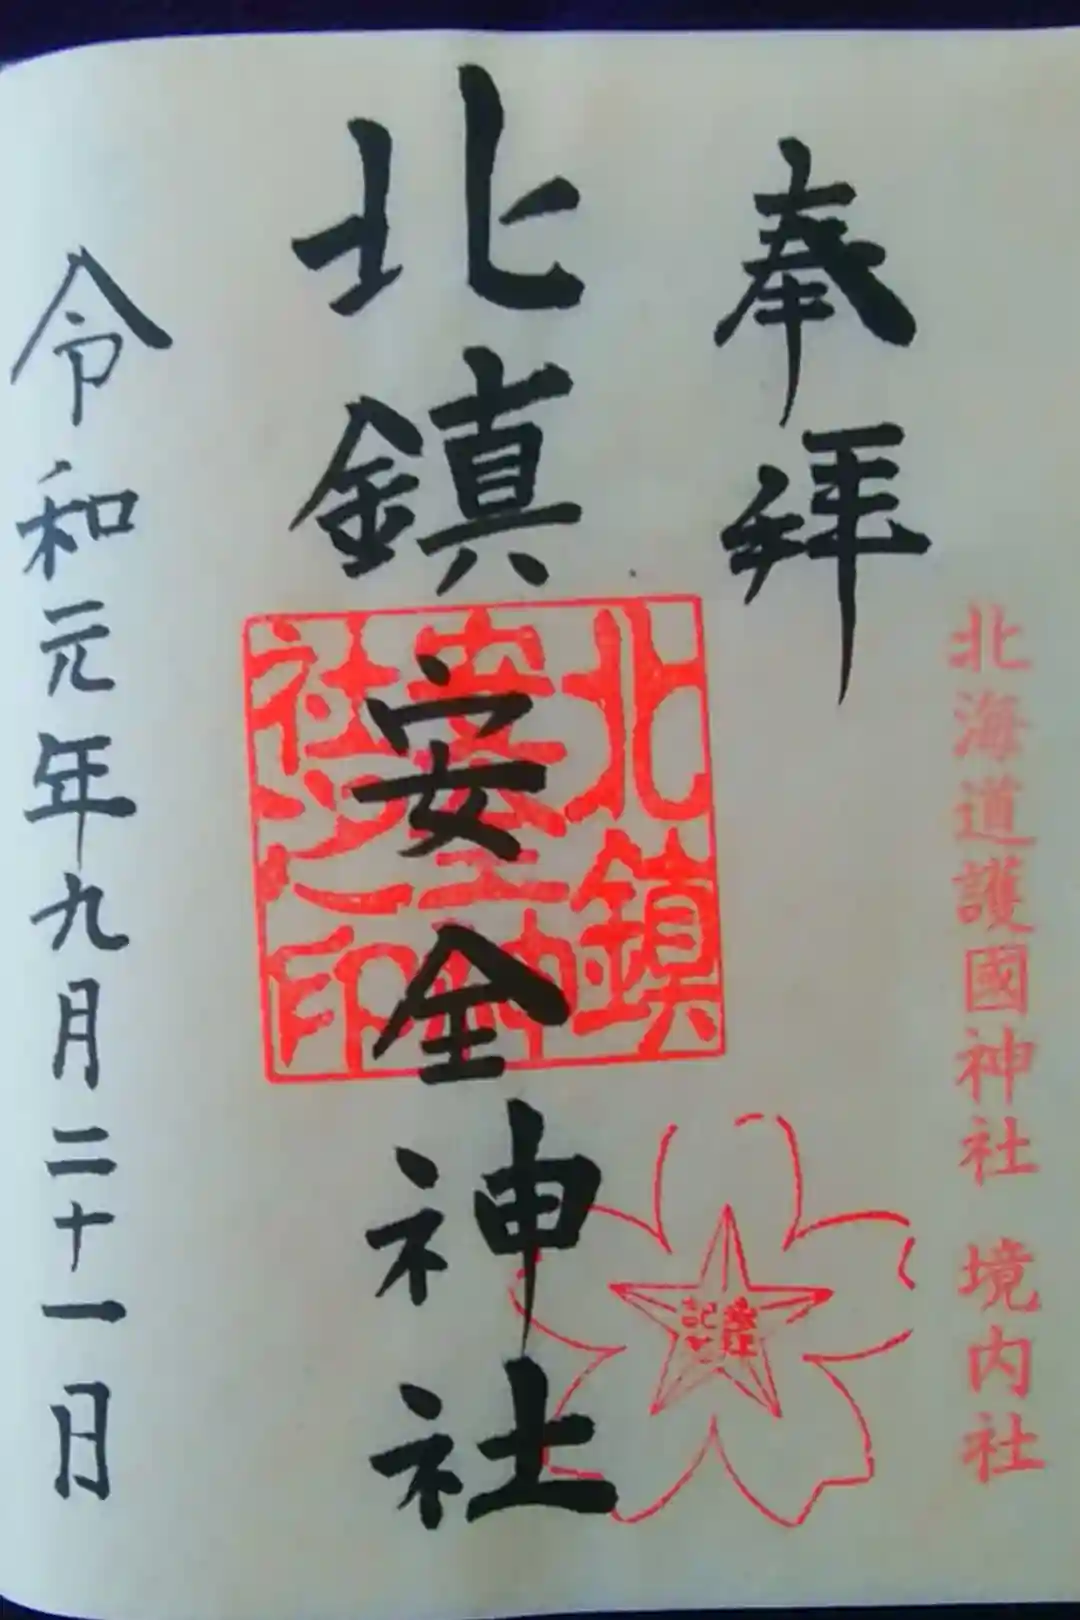 奉拝
北海道護國神社 境内社
北鎮安全神社
北鎮
安全神
社之印
参拝
記念
令和元年九月二十一日